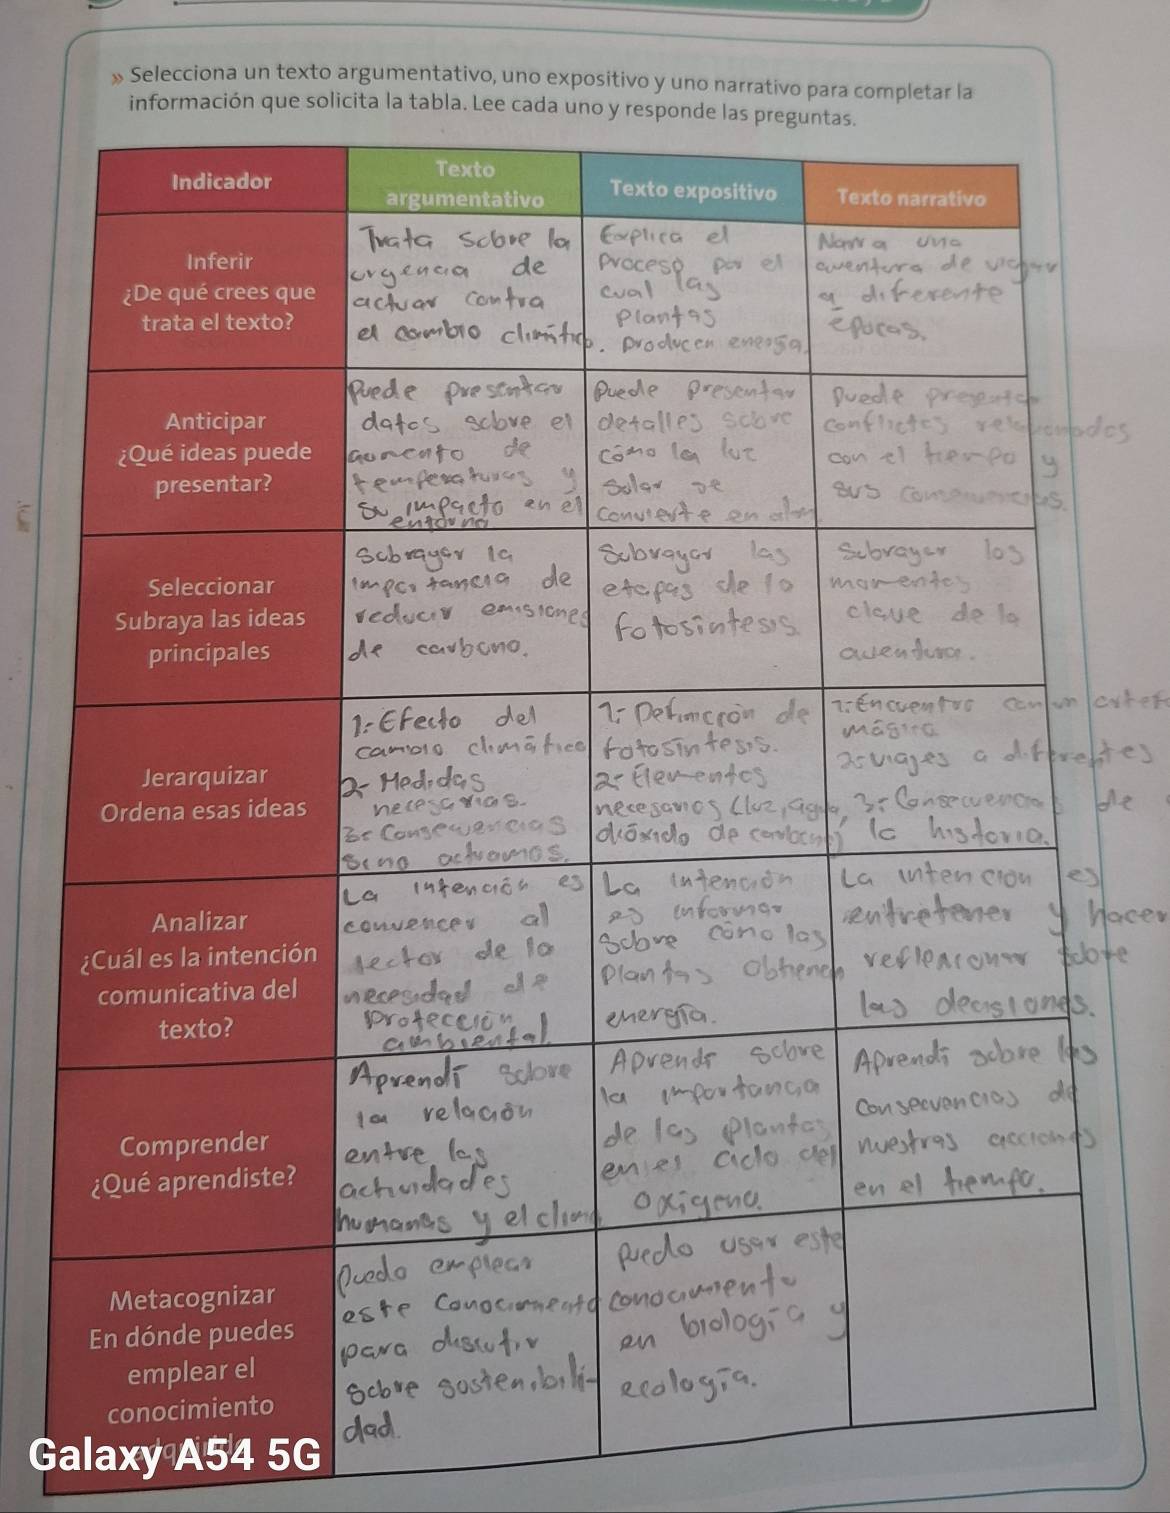 » Selecciona un texto argumentativo, uno expositivo y uno narrativo para completar la
información que solicita la tabla. Lee cada uno y responde las preguntas.
Indicador
Texto
argumentativo
Texto expositivo
Texto narrativo
Inferir
¿De qué crees que
trata el texto?
Trata sobre la
urgencia de
actuar contra
el cambio climático.
Explica el
proceso por el
cual las
plantas
producen energía.
Narra una
aventura de viajar
a diferente
épocas.
Anticipar
¿Qué ideas puede
presentar?
Puede presentar
datos sobre el
aumento de
temperaturas y
su impacto en el
entorno
Puede presentar
detalles sobre
cómo la luz
solar se
convierte en
Puede presentar
conflictos relacionados
con el tiempo y
sus consecuencias.
Seleccionar
Subraya las ideas
principales
Subrayar la
importancia de
reducir emisiones
de carbono.
Subrayar las
etapas de la
fotosintesis
Subrayar los
momentos
clave de la
aventura.
Jerarquizar
Ordena esas ideas
1- Efecto del
cambio climático
2- Medidas
necesarias.
3- Consecuencias
si no actuamos.
1- Definición de
fotosíntesis.
2- Elementos
necesarios (luz, agua,
dióxido de carbono)
1- Encuentros con un
mágica
2- viajes a diferentes
3- Consecuencias de
la historia.
Analizar
¿Cuál es la intención
comunicativa del
texto?
La intención es
convencer al
lector de la
necesidad de
protección
ambiental
La intención
es informar
sobre cómo las
plantas obtienen
energía.
La intencion es
entretener y hacer
reflexionar sobre
las decisiones.
Comprender
¿Qué aprendiste?
Aprendí sobre
la relación
entre las
actividades
humanas y el clima
Aprendí sobre
la importancia
de las plantas
en el ciclo del
oxigeno.
Aprendí sobre las
consecuencias de
nuestras acciones
en el tiempo.
Metacognizar
En dónde puedes
emplear el
conocimiento
Puedo emplear
este conocimiento
para discutir
sobre sostenibili-
dad.
Puedo usar este
conocimiento
en biología y
ecología.
Galaxy A54 5G